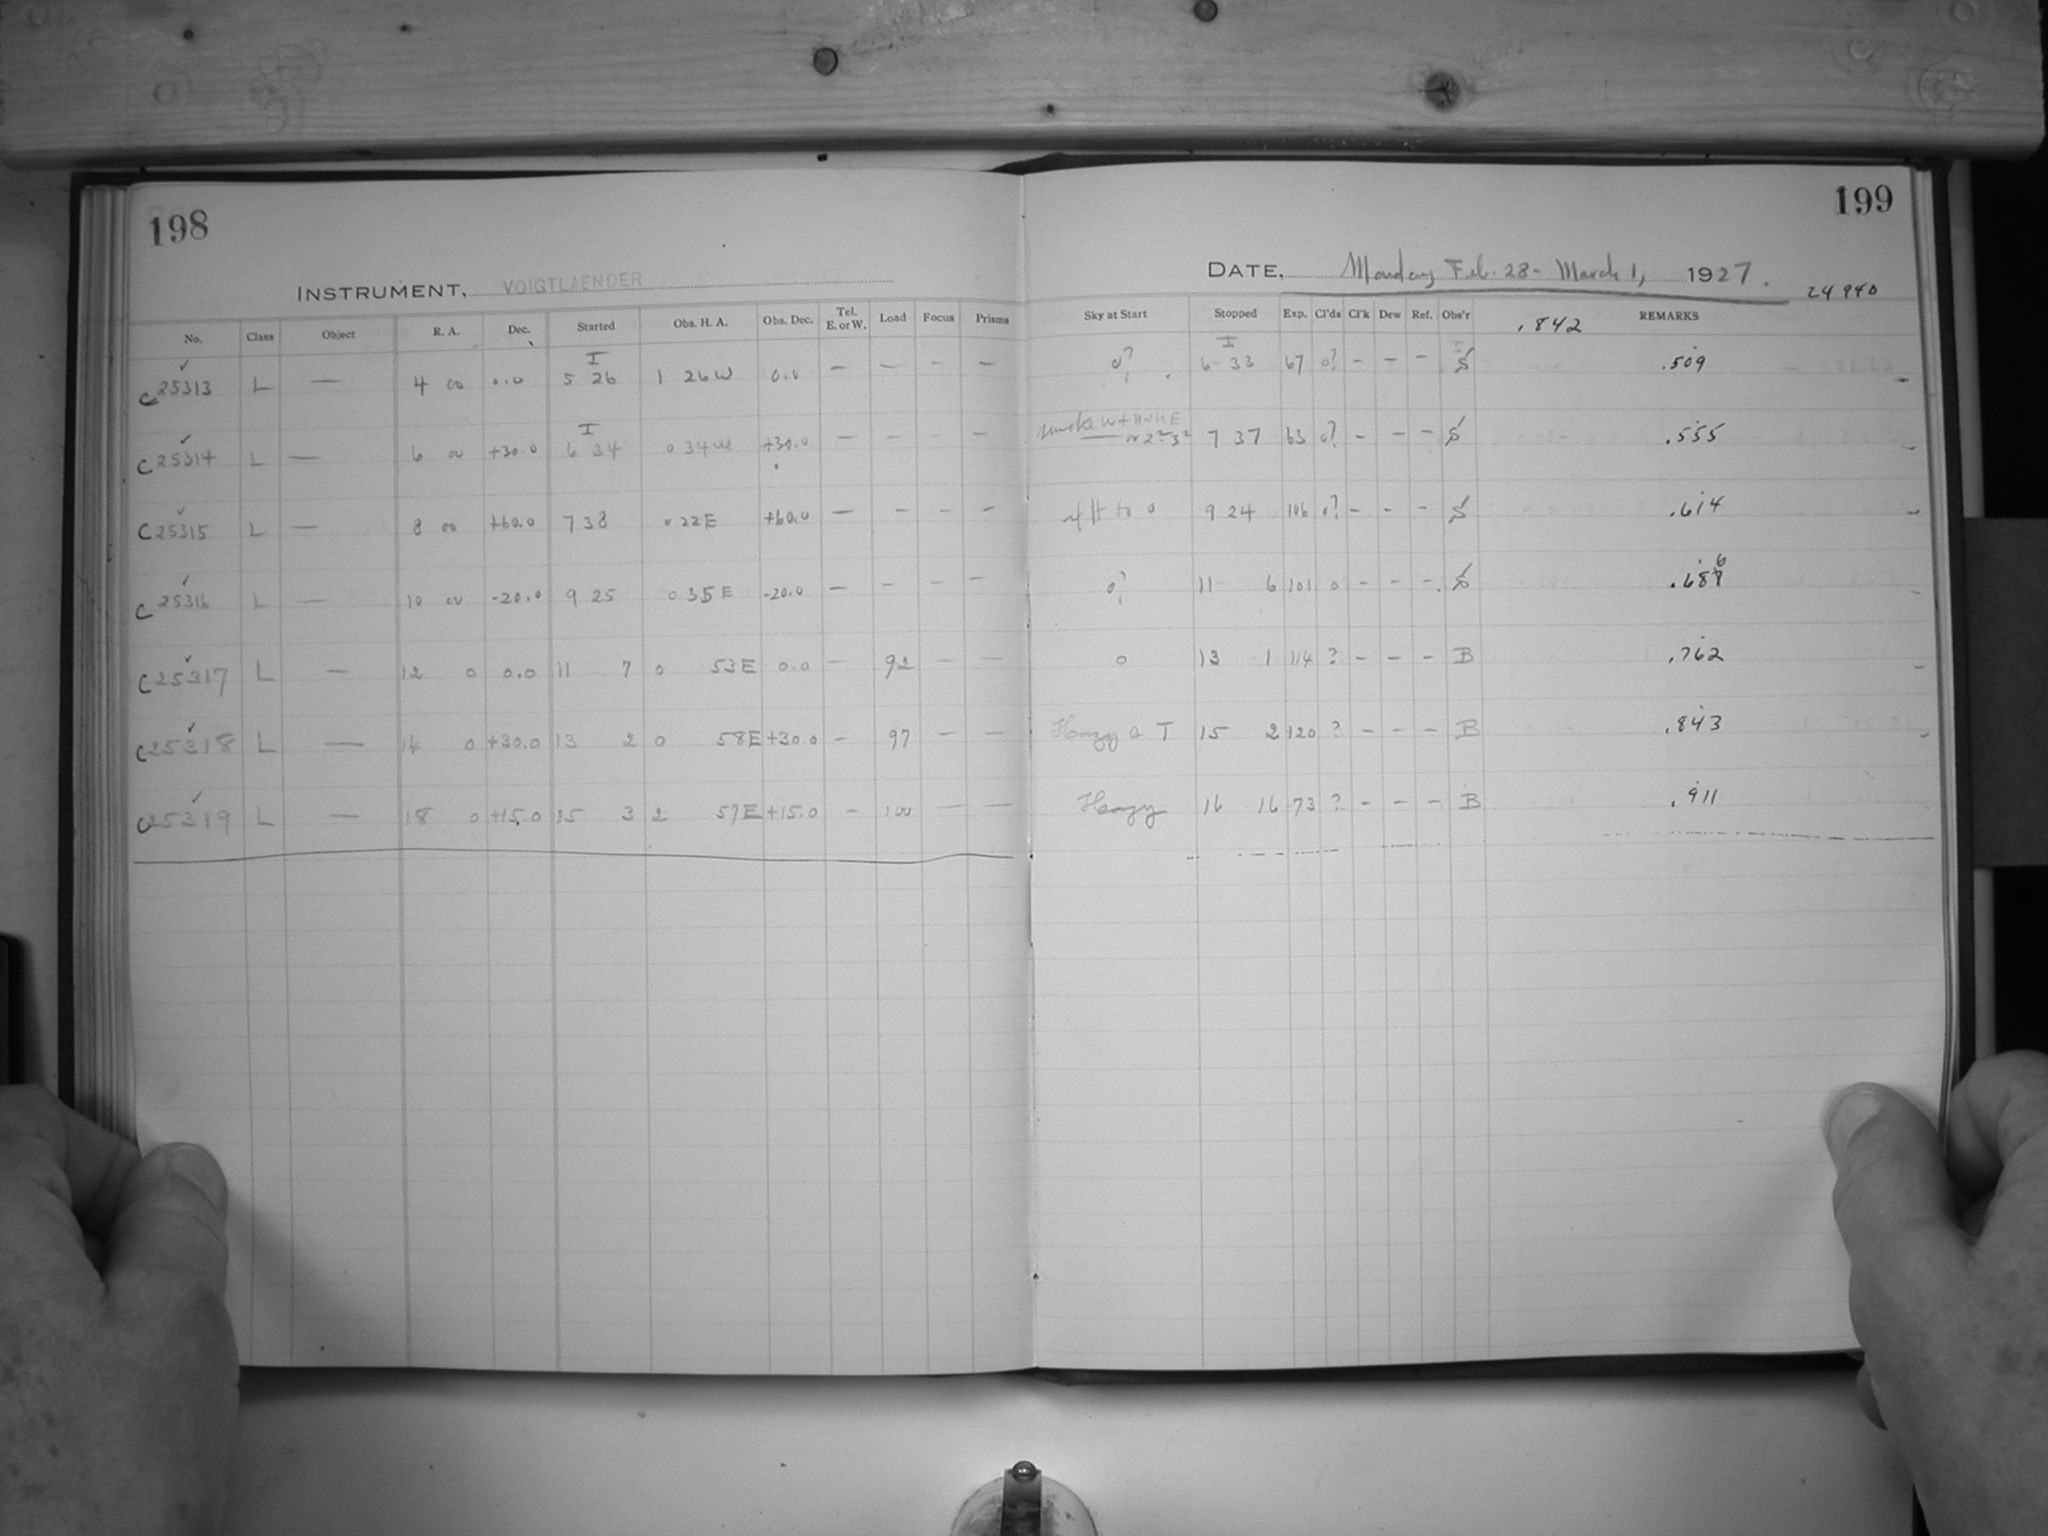 198
INSTRUMENT, VOIGTLAENDER
No. Class Object R. A. Dec. Started Obs. H. A. Obs. Dec. Tel. E. or W. Load Focus Prisms
I
C 25313 L — 4 00 0.0 5 26 1 26 W 0.0 — — — —
I
C 25314 L — 6 00 +30.0 6 34 0 34 W +30.0 — — — —
C 25315 L — 8 00 +60.0 7 38 0 22 E +60.0 — — — —
C 25316 L — 10 00 -20.0 9 25 0 35 E -20.0 — — — —
C 25317 L — 12 0 0.0 11 7 0 53 E 0.0 — 92 — —
C 25318 L — 14 0 +30.0 13 2 0 58 E +30.0 — 97 — —
C 25319 L — 18 0 +15.0 15 3 2 57 E +15.0 — 100 — —
199
DATE, Monday Feb. 28 - March 1, 1927.
24940
Sky at Start Stopped Exp. Cl'ds Cl'k Dew Ref. Obs'r .842 REMARKS
I
0? 6 33 67 0? — — — S .509
smoke W + N - NE
7 37 63 0? — — — S .555
to 0 9 24 106 0? — — — S .614
0? 11 6 101 0 — — — S .686
0 13 1 114 ? — — — B .762
Hazy a T 15 2 120 ? — — — B .843
Hazy 16 16 73 ? — — — B .911